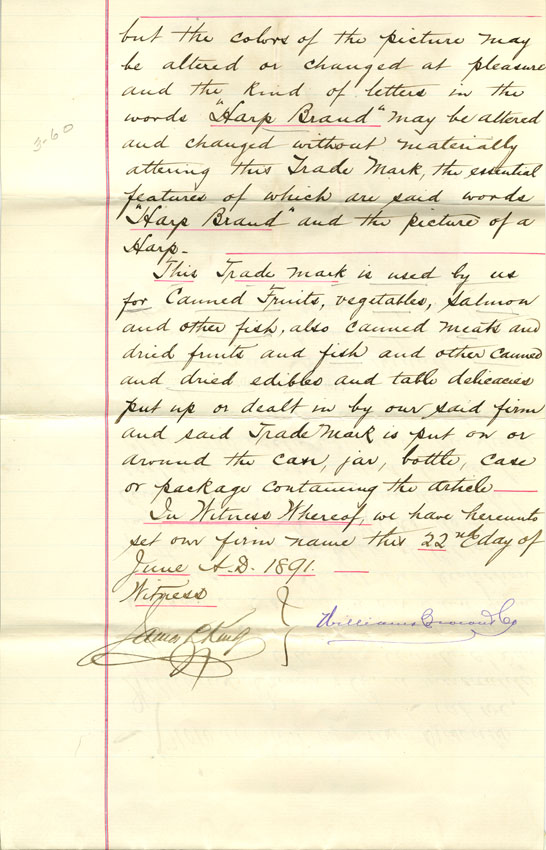 but the colors of the picture may
be altered or changed at pleasure
and the kind of letters in the
words "Harp Brand" may be altered
3-60
and changed without materially
altering this Trade Mark, the essential
features of which are said words
"Harp Brand" and the picture of a
Harp.
This Trade mark is used by us
for Canned Fruits, vegetables, Salmon
and other fish, also canned meats and
dried fruits and fish and other canned
and dried edibles and table delicacies
put up or dealt in by our said firm
and said Trade Mark is put on or
around the can, jar, bottle, case
or package containing the article
In Witness Whereof, we have hereunto
set our firm name this 22nd day of
June A.D. 1891.
Witness
Williams Brown & Co
James King